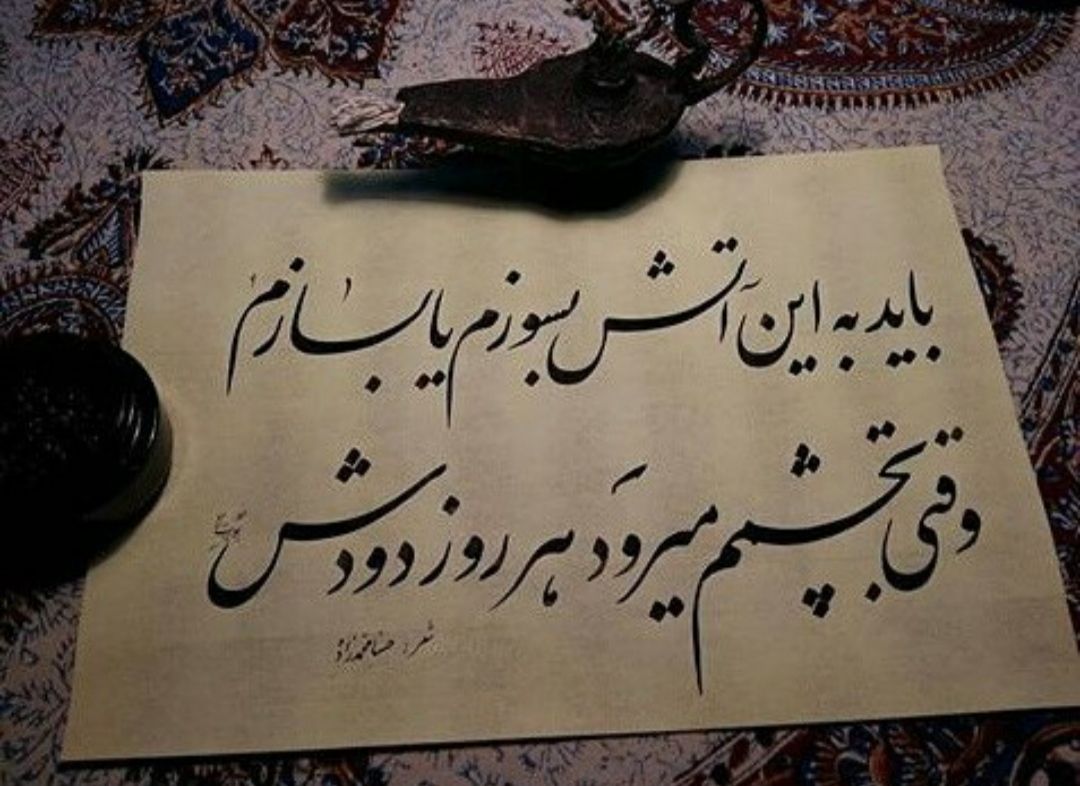 باید به این آتش بسوزم یا بسازم
وقتی بچشمم میرود هر روز دودش
شعر: حسنا محمدزاده